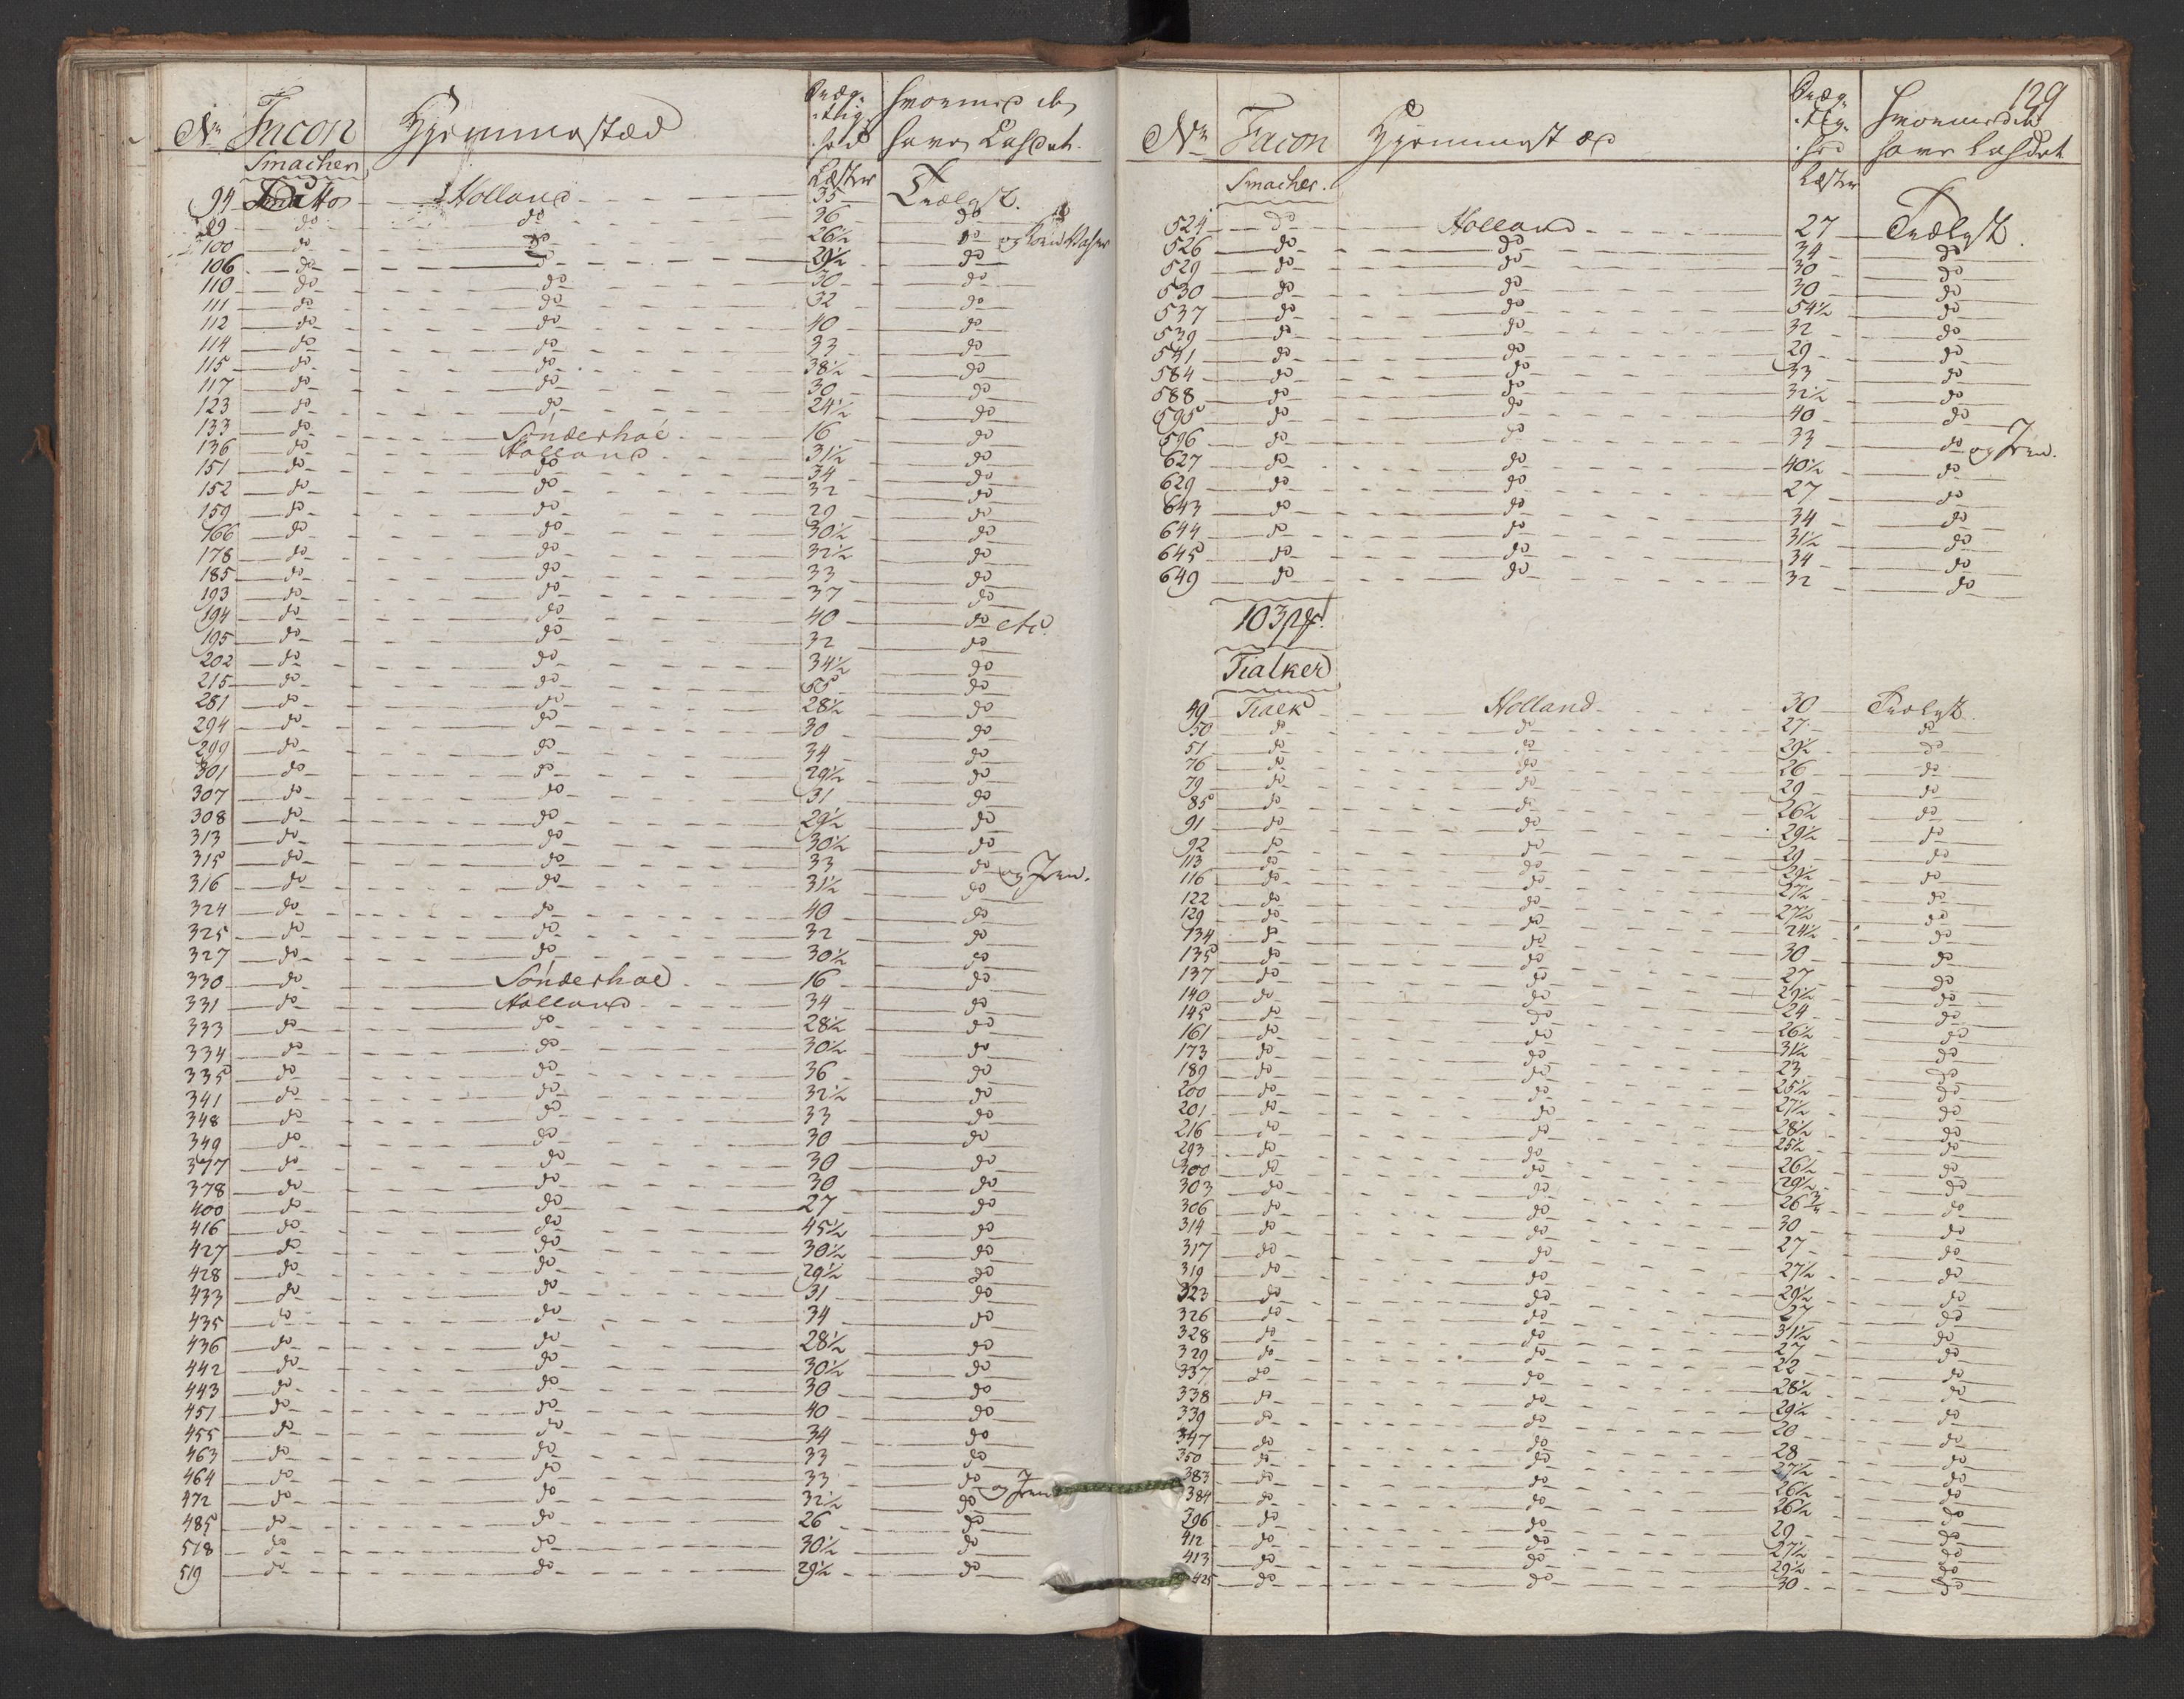 No Facon Hjemmestæd Dræg- tlig- hed hvormed de
have Ladet.
Smacher Læster
94 Ditto Holland 35 Trælast.
99 do do 36 do
100 do do 26½ do og
106 do do 29½ do
110 do do 30 do
111 do do 32 do
112 do do 40 do
114 do do 33 do
115 do do 38½ do
117 do do 30 do
123 do do 24½ do
133 do Sönderhoe 16 do
136 do Holland 31½ do
151 do do 34 do
152 do do 32 do
159 do do 29 do
166 do do 30½ do
178 do do 32½ do
185 do do 33 do
193 do do 37 do
194 do do 40 do etc.
195 do do 32 do
202 do do 34½ do
215 do do 55 do
281 do do 28½ do
294 do do 30 do
299 do do 34 do
301 do do 29½ do
307 do do 31 do
308 do do 29½ do
313 do do 30½ do
315 do do 33 do og Jern.
316 do do 31½ do
324 do do 40 do
325 do do 32 do
327 do do 30½ do
330 do Sönderhoe 16 do
331 do Holland 34 do
333 do do 28½ do
334 do do 30½ do
335 do do 36 do
341 do do 32½ do
348 do do 33 do
349 do do 30 do
377 do do 30 do
378 do do 30 do
400 do do 27 do
416 do do 45½ do
427 do do 30½ do
428 do do 29½ do
433 do do 31 do
435 do do 34 do
436 do do 28½ do
442 do do 30½ do
443 do do 30 do
451 do do 40 do
455 do do 34 do
463 do do 33 do
464 do do 33 do og Jern
472 do do 32½ do
485 do do 26 do
518 do do 30½ do
519 do do 29½ do
129
No Facon Hjemmestæd Dræg- tlig- hed hvormed de
have Ladet
Smacher. Læster
524 do Holland 27 Trælast.
526 do do 34 do
529 do do 30 do
530 do do 30 do
537 do do 54½ do
539 do do 32 do
541 do do 29 do
584 do do 33 do
588 do do 32½ do
595 do do 40 do
596 do do 33 do og Jern.
627 do do 40½ do
629 do do 27 do
643 do do 34 do
644 do do 31½ do
645 do do 34 do
649 do do 32 do
103
Tialker
49 Tialk Holland 30 Trælast
50 do do 27 do
51 do do 29½ do
76 do do 26 do
79 do do 29 do
85 do do 26½ do
91 do do 29½ do
92 do do 29 do
113 do do 29½ do
116 do do 27½ do
122 do do 27½ do
129 do do 24½ do
134 do do 30 do
135 do do 27 do
137 do do 29½ do
140 do do 24 do
145 do do 26½ do
161 do do 31½ do
173 do do 23 do
189 do do 25½ do
200 do do 27½ do
201 do do 28½ do
216 do do 25½ do
293 do do 26½ do
300 do do 29½ do
303 do do 26¾ do
306 do do 30 do
314 do do 27 do
317 do do 27½ do
319 do do 29½ do
323 do do 27 do
326 do do 31½ do
328 do do 27 do
329 do do 22 do
337 do do 28½ do
338 do do 29½ do
339 do do 20 do
347 do do 28 do
350 do do 27½ do
383 do do 26½ do
384 do do 26½ do
296 do do 29 do
412 do do 27½ do
413 do do 29½ do
425 do do 30 do